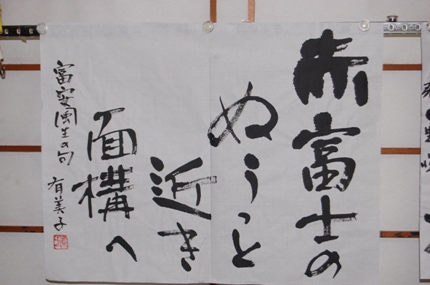 赤富士の
ぬうっと
近き
面構へ
富安風生の句
有美子